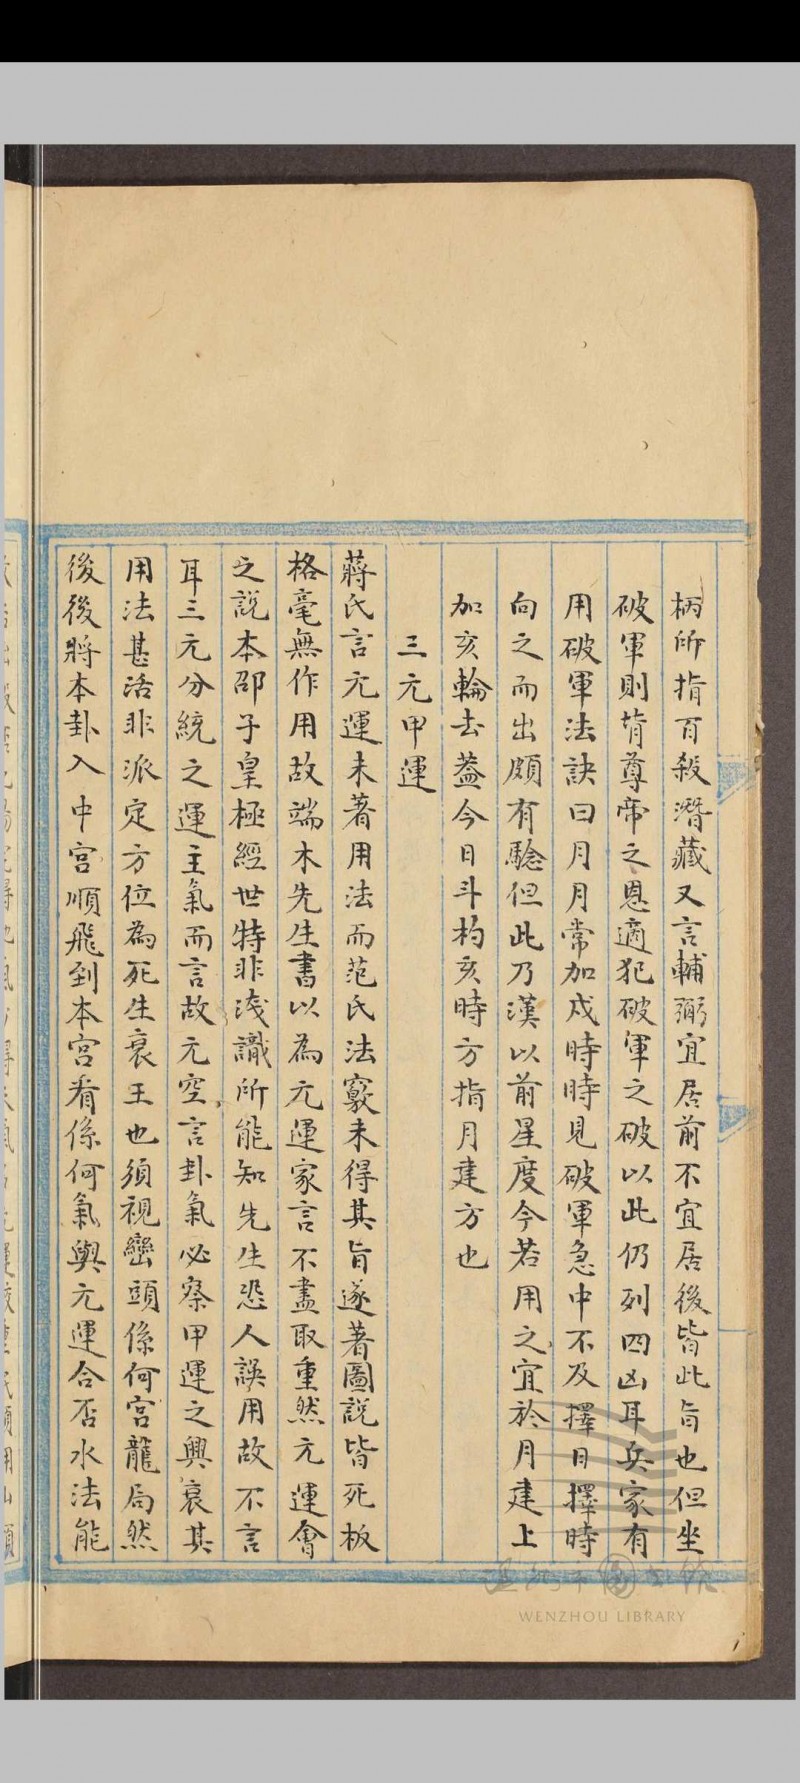 柄所指百殺潛藏又言輔弼宜居前不宜居後皆此旨也但坐
破軍則背尊帝之恩適犯破軍之破以此仍列四凶耳兵家有
用破軍法訣曰月月常加戌時時見破軍急中不及擇日擇時
向之而出頗有驗但此乃漢以前星度今若用之宜於月建上
加亥輪去葢今日斗杓亥時方指月建方也
三元甲運
蔣氏言亢運未著用法而范氏法竅未得其旨遂著圖説皆死板
格毫無作用故端木先生書以為亢運家言不盡取重然亢運會
之說本邵子皇極經世特非浅識所能知先生恐人誤用故不言
耳三元分統之運主氣而言故元空言卦氣必察甲運之興衰其
用法甚活非派定方位為死生衰王也須視巒頭係何宮龍局然
後後將本卦入中宮順飛到本宮看係何氣與亢運合否水法能
WENZHOU LIBRARY